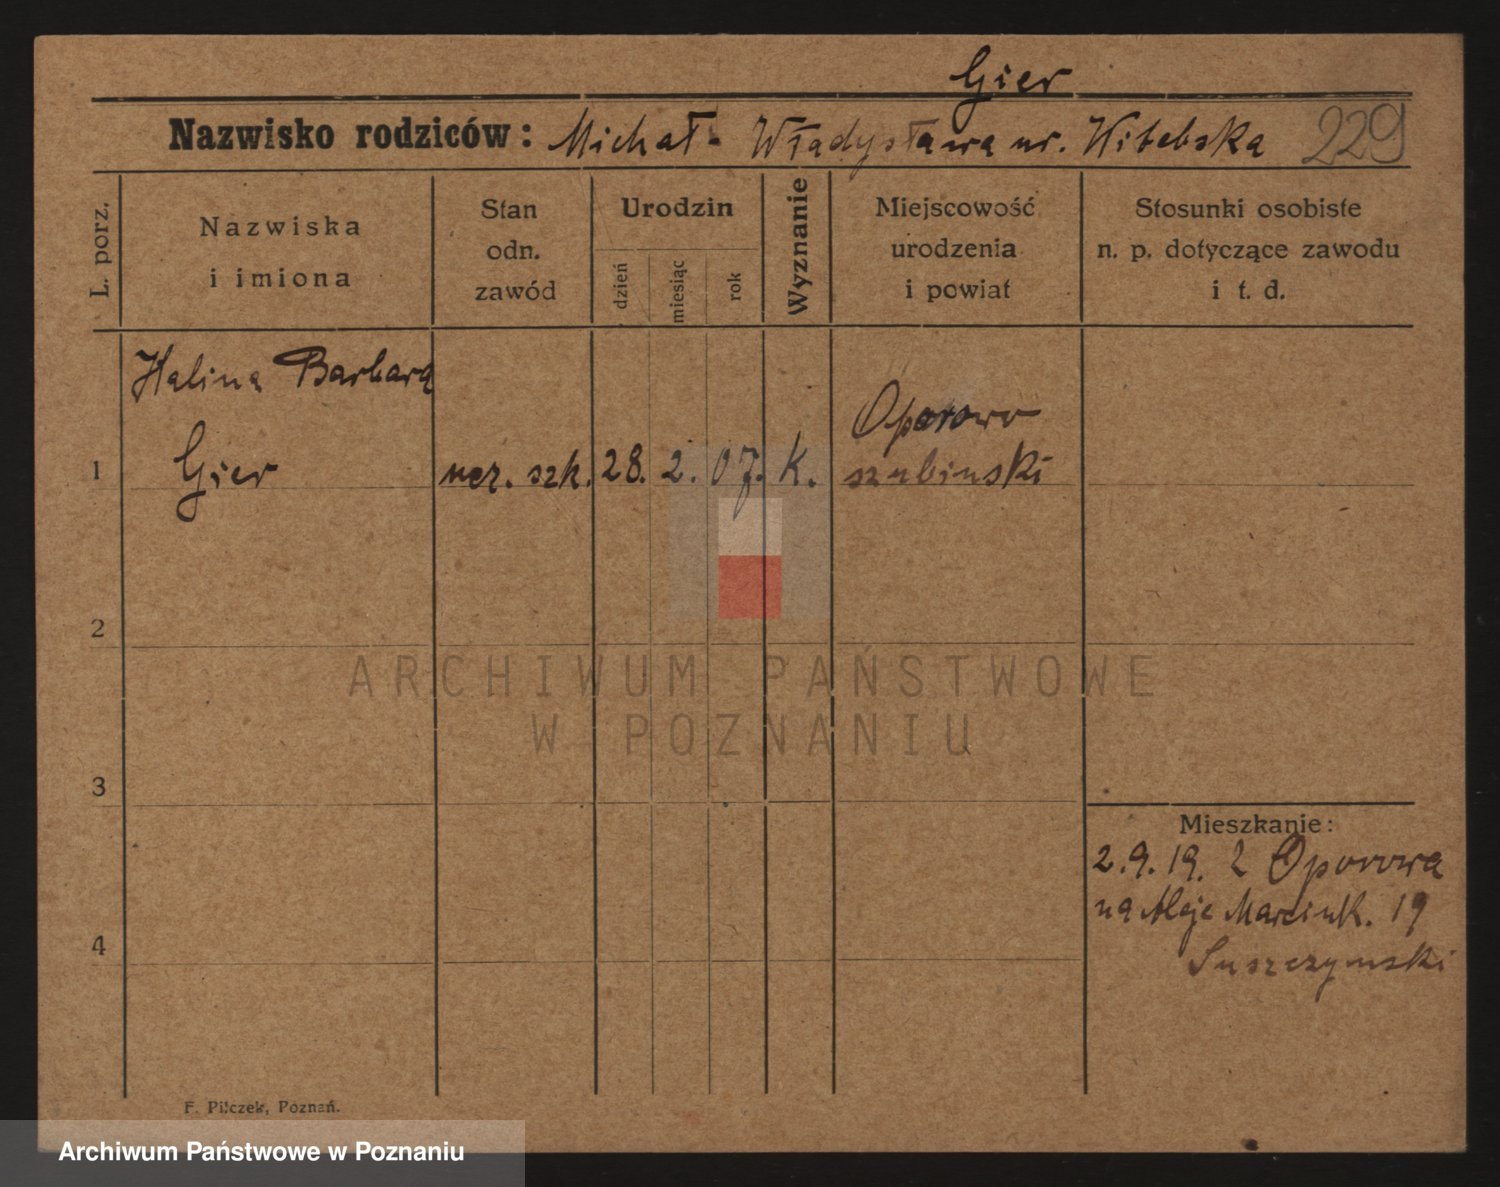 Gier
Nazwisko rodziców: Michał. Władysława ur. Witebska 229
L. porz.
Nazwiska
i imiona
Stan
odn.
zawód
Urodzin
dzień
miesiąc
rok
Wyznanie
Miejscowość
urodzenia
i powiat
Stosunki osobiste
n. p. dotyczące zawodu
i t. d.
Halina Barbara
1 Gier ucz. szk. 28. 2. 07. K. Oporowo
szubinski
2
3
4
ARCHIWUM PAŃSTWOWE
W POZNANIU
Mieszkanie:
2.9.19. z Oporowa
na Aleje Marcink. 19
Suszczynski
F. Pilczek, Poznań.
Archiwum Państwowe w Poznaniu